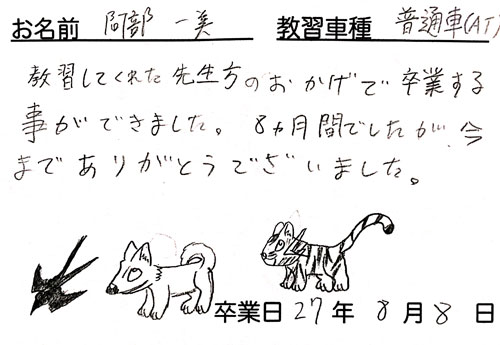 お名前 阿部 一美 教習車種 普通車(AT)
教習してくれた先生方のおかげで卒業する
事ができました。8ヵ月間でしたが、今
までありがとうございました。
卒業日27年8月8日